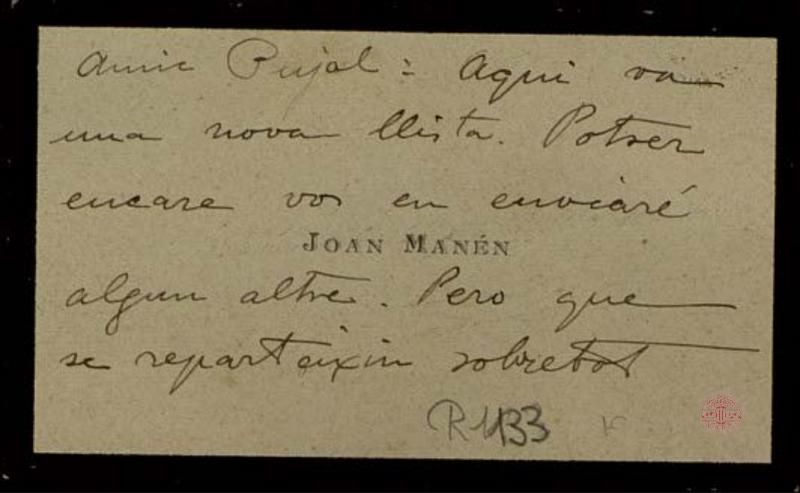 Amic Pujol: Aqui va
una nova llista. Potser
encare vos en enviaré
JOAN MANÉN
algun altre. Pero que
se reparteixin sobretot
R1433